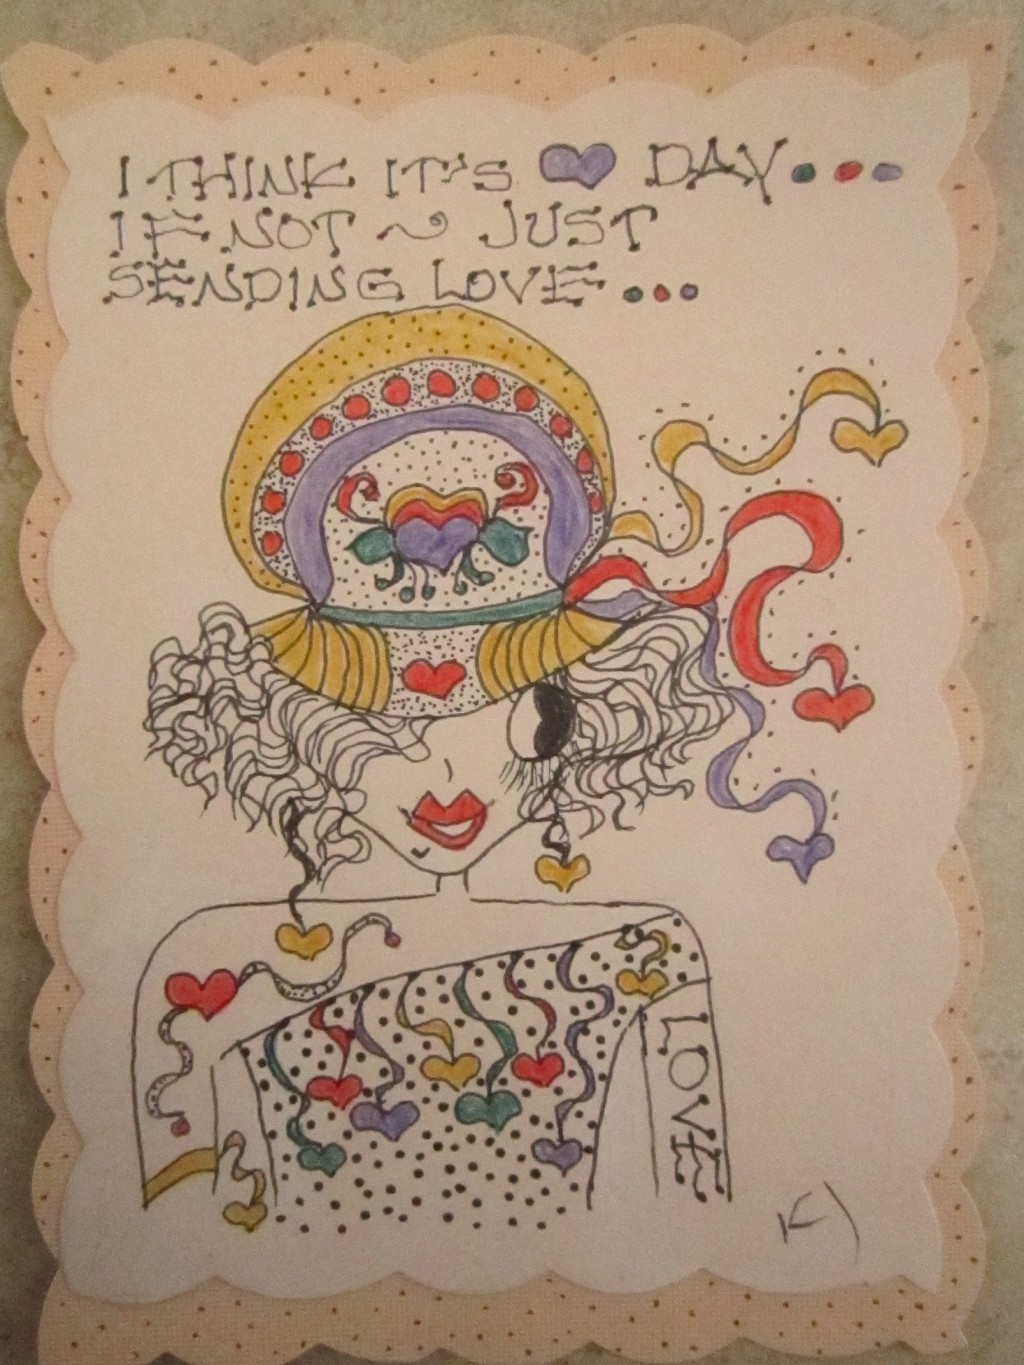 I THINK IT'S 💜 DAY...
IF NOT ~ JUST
SENDING LOVE...
LOVE